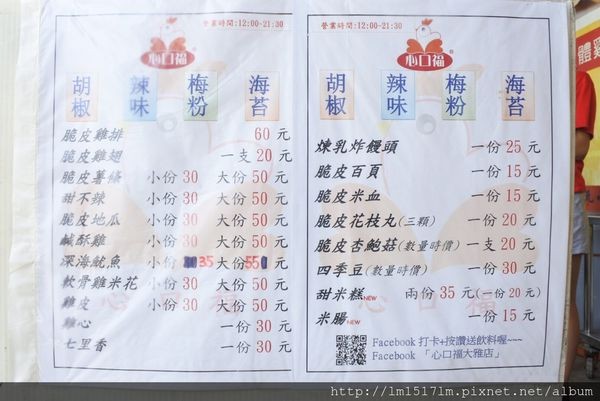 營業時間:12:00-21:30
心口福
胡椒 辣味 梅粉 海苔
脆皮雞排 60元
脆皮雞翅 一支20元
脆皮薯條 小份30 大份50元
甜不辣 小份30 大份50元
脆皮地瓜 小份30 大份50元
鹹酥雞 小份30 大份50元
深海魷魚 小份35 大份55元
軟骨雞米花 小份30 大份50元
雞皮 小份30 大份50元
雞心 一份30元
七里香 一份30元
營業時間:12:00-21:30
心口福
胡椒 辣味 梅粉 海苔
煉乳炸饅頭 一份25元
脆皮百頁 一份15元
脆皮米血 一份15元
脆皮花枝丸(三顆) 一份20元
脆皮杏鮑菇(數量時價) 一支20元
四季豆(數量時價) 一份30元
甜米糕NEW 兩份35元(一份20元)
米腸NEW 一份15元
Facebook 打卡+按讚送飲料喔~~~
Facebook 「心口福大雅店」
體雞
http://lm1517lm.pixnet.net/album